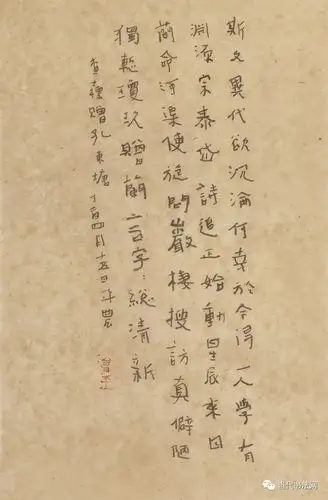 斯文異代欲沉淪何幸於今得一人學有
淵源宗泰岱詩追正始動星辰來因
簡命河渠使旋問巖棲搜訪真僻陋
獨慙瓊玖贈蘭言字〻總清新
贈孔東塘丁酉四月十五日斗農
当代书法网